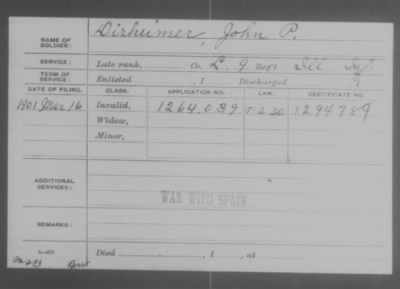 NAME OF SOLDIER: Dirheimer, John P.
SERVICE: Late rank, Co. L. 9 Reg't Ill Inf.
TERM OF SERVICE: Enlisted , 1 Discharged , 1
DATE OF FILING. CLASS. APPLICATION NO. LAW. CERTIFICATE NO.
1901 Mar 16 Invalid, 1264.039 1294789
Widow,
Minor,
ADDITIONAL SERVICES:
WAR WITH SPAIN
REMARKS:
Died , 1 , at